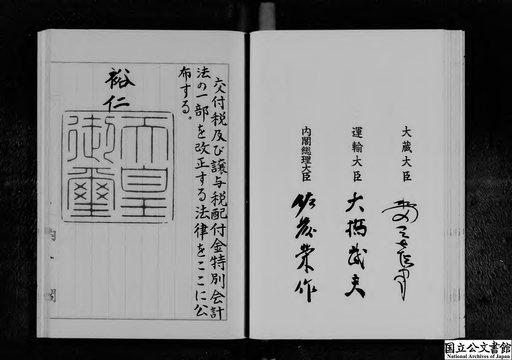 大蔵大臣
運輸大臣
大橋武夫
内閣総理大臣
佐藤榮作
交付税及び譲与税配付金特別会計
法の一部を改正する法律をここに公
布する。
裕仁
天皇
御璽
国立公文書館
National Archives of Japan